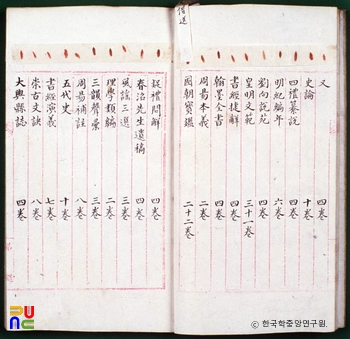 借送
又
史論 十卷
四禮纂說 四卷
明紀編年 六卷
劉向說苑 四卷
皇明文範 三十一卷
書經捷解 四卷
翰墨全書 四卷
周易本義 二卷
國朝寶鑑 二十二卷
疑禮問解 四卷
春沼先生遺稿 四卷
風謠三選 三卷
理學類編 二卷
三韻聲彙 三卷
周易補註 八卷
五代史 十卷
書經演義 七卷
崇古文訣 八卷
大興縣誌 四卷
RUNC
© 한국학중앙연구원.